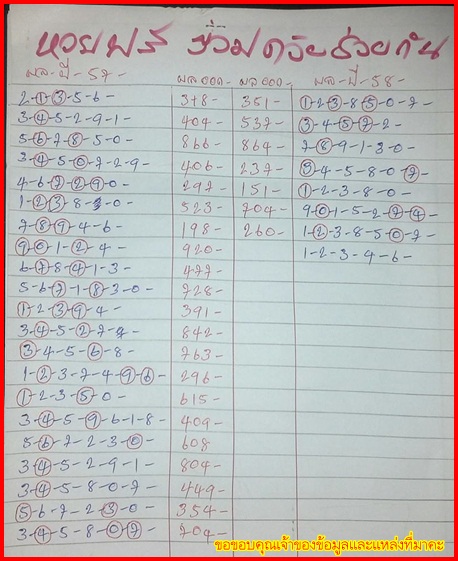 หวยฟรี ชี้นำ ด้วยช่วยกัน
ผล-ปี-57- ผลออก- ผลออก- ผล-ปี-58-
2-1-3-5-6- 318- 351- 1-2-3-8-5-0-7-
3-4-5-2-9-1- 404- 537- 3-4-5-7-2-
5-6-7-8-5-0- 866- 864- 7-8-9-1-3-0
3-4-5-0-7-2-9- 406- 237- 3-4-5-8-0-7-
4-6-7-2-9-0- 297- 151- 1-2-3-8-0-
1-2-3-8-3-0- 523- 704- 9-0-1-5-2-7-4-
7-8-9-4-6- 198- 260- 1-2-3-8-5-0-7-
9-0-1-2-4- 920- 1-2-3-4-6-
6-7-8-4-1-3- 477-
5-6-7-1-8-3-0- 728-
1-2-3-9-4- 391-
3-4-5-2-7-9- 842-
3-4-5-6-8- 763-
1-2-3-7-4-9-6- 296-
1-2-3-5-0- 615-
3-4-5-9-6-1-8- 409-
5-6-7-2-3-0- 608-
3-4-5-2-9-1- 804-
3-4-5-8-0-7- 449-
5-6-7-2-3-0- 354-
3-4-5-8-0-7- 704-
ขอขอบคุณเจ้าของข้อมูลและแหล่งที่มาคะ